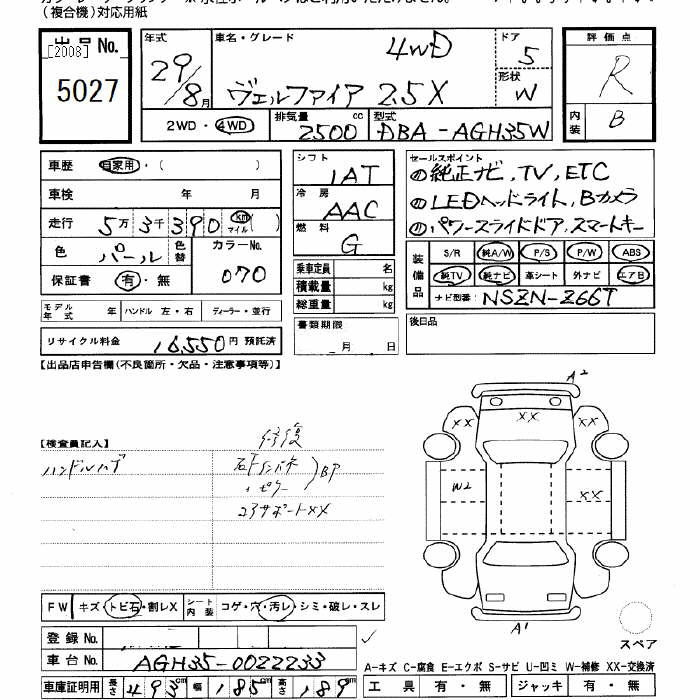 (複合機)対応用紙
出品 No.
[2008]
5027
年式
29/8月
車名・グレード
4WD
ヴェルファイア 2.5X
ドア
5
形状
W
評価点
R
内装
B
2WD・4WD
排気量
2500cc
型式
DBA-AGH35W
車歴 自家用・( )
車検 年 月
走行 5万3千390 km マイル ( )
色 パール
色替
カラーNo.
070
保証書 有・無
モデル年式 年 ハンドル 左・右 ディーラー・並行
リサイクル料金 16,550円 預託済
シフト
1AT
冷房
AAC
燃料
G
乗車定員 名
積載量 kg
総重量 kg
書類期限
月 日
セールスポイント
純正ナビ, TV, ETC
LEDヘッドライト, Bカメラ
パワースライドドア, スマートキー
装備品
S/R 純A/W P/S P/W ABS
純TV 純ナビ 革シート 外ナビ エアB
ナビ型番: NSZN-Z66T
後日品
【出品店申告欄(不良箇所・欠品・注意事項等)】
【検査員記入】
修復
BP
コアサポートXX
A2
XX
XX
W2
XX
A1
スペア
FW キズ・トビ石・割レX シート内装 コゲ・穴・汚レ・シミ・破レ・スレ
登録 No.
車台 No. AGH35-0022233
車庫証明用 長さ 493cm 幅 185cm 高さ 189cm
A-キズ C-腐食 E-エクボ S-サビ U-凹ミ W-補修 XX-交換済
工具 有・無 ジャッキ 有・無